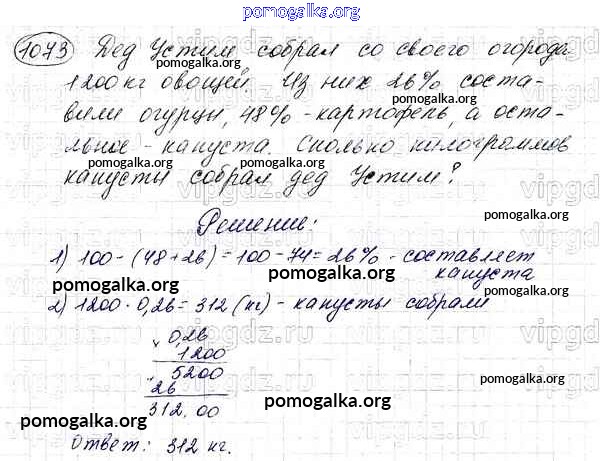 pomogalka.org
1073 Дед Устим собрал со своего огорода
1200 кг овощей. Из них 26% соста-
pomogalka.org
вили огурцы, 48% - картофель, а оста-
pomogalka.org
льное - капуста. Сколько килограммов
pomogalka.org pomogalka.org
капусты собрал дед Устим?
vipgdz.ru
Решение:
pomogalka.org
1) 100 - (48 + 26) = 100 - 74 = 26% - составляет
капуста
pomogalka.org pomogalka.org
2) 1200 · 0,26 = 312 (кг) - капусты собрали
vipgdz.ru
× 0,26
1200
pomogalka.org
5200
26
pomogalka.org pomogalka.org
312,00
pomogalka.org
Ответ: 312 кг.